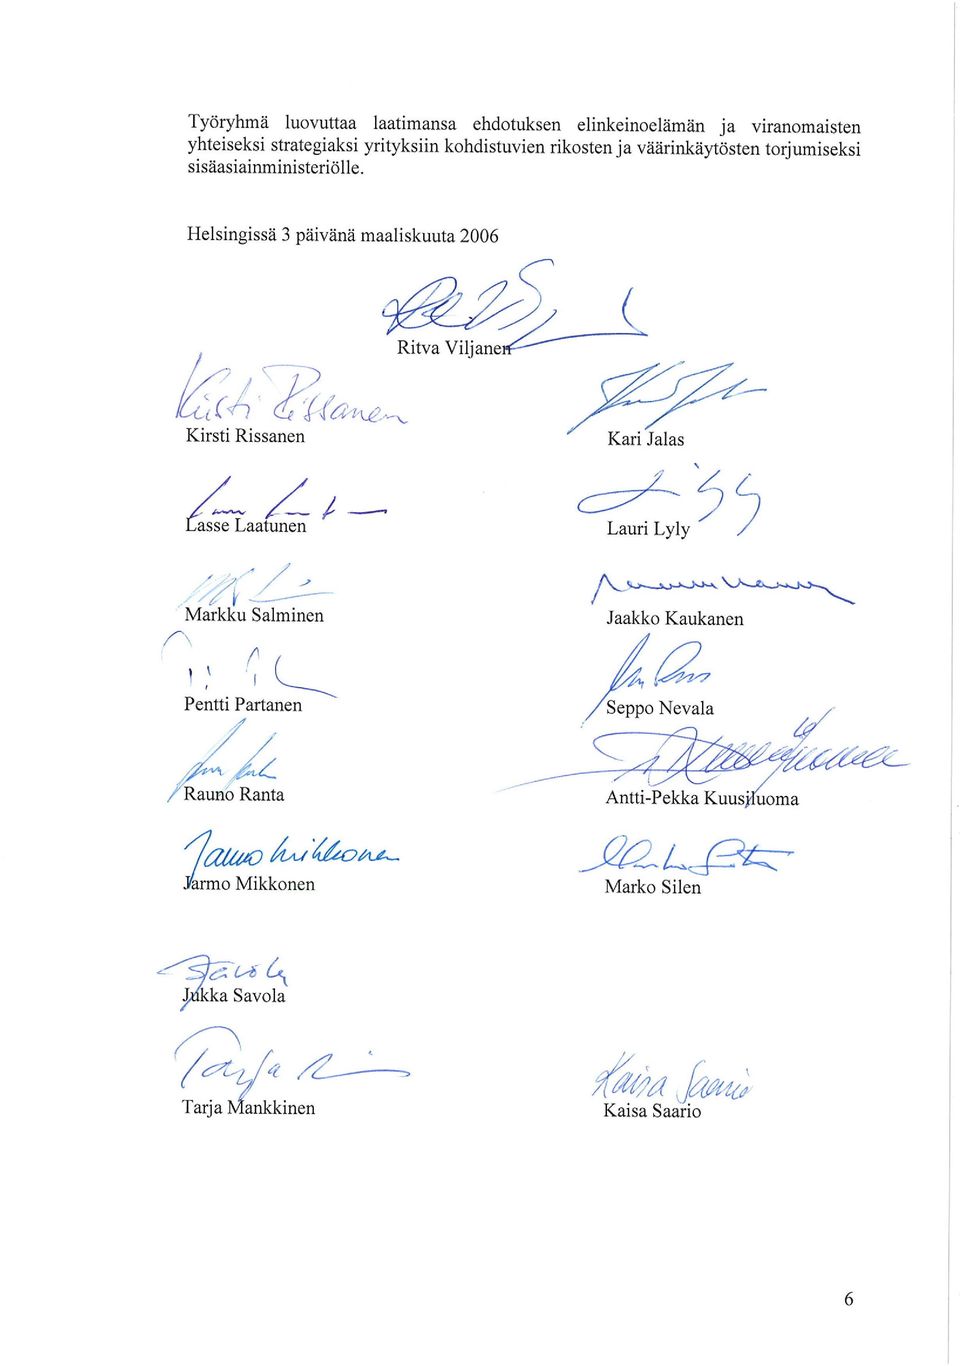 Työryhmä luovuttaa laatimansa ehdotuksen elinkeinoelämän ja viranomaisten
yhteiseksi strategiaksi yrityksiin kohdistuvien rikosten ja väärinkäytösten torjumiseksi
sisäasiainministeriölle.
Helsingissä 3 päivänä maaliskuuta 2006
Ritva Viljanen
Kirsti Rissanen
Kirsti Rissanen
Kari Jalas
Lasse Laatunen
Lauri Lyly
Markku Salminen
Jaakko Kaukanen
Pentti Partanen
Seppo Nevala
Rauno Ranta
Antti-Pekka Kuusiluoma
Jarmo Mikkonen
Jarmo Mikkonen
Marko Silen
Savola
Jukka Savola
Tarja
Kaisa Saario
Tarja Mankkinen
Kaisa Saario
6